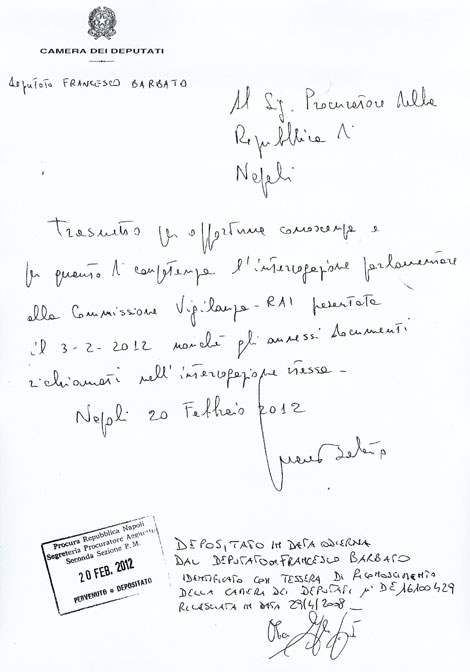 CAMERA DEI DEPUTATI
deputato FRANCESCO BARBATO
Al Sig. Procuratore della
Repubblica di
Napoli
Trasmetto per opportuna conoscenza e
per quanto di competenza l'interrogazione parlamentare
alla Commissione Vigilanza-RAI presentata
il 3-2-2012 nonché gli annessi documenti
richiamati nell'interrogazione stessa-
Napoli 20 Febbraio 2012
Procura Repubblica Napoli
Segreteria Procuratore Aggiunto
Seconda Sezione P.M.
20 FEB. 2012
PERVENUTO e DEPOSITATO
DEPOSITATO IN DATA ODIERNA
DAL DEPUTATO FRANCESCO BARBATO
IDENTIFICATO CON TESSERA DI RICONOSCIMENTO
DELLA CAMERA DEI DEPUTATI n° DE16100429
RILASCIATA IN DATA 29/4/2008-